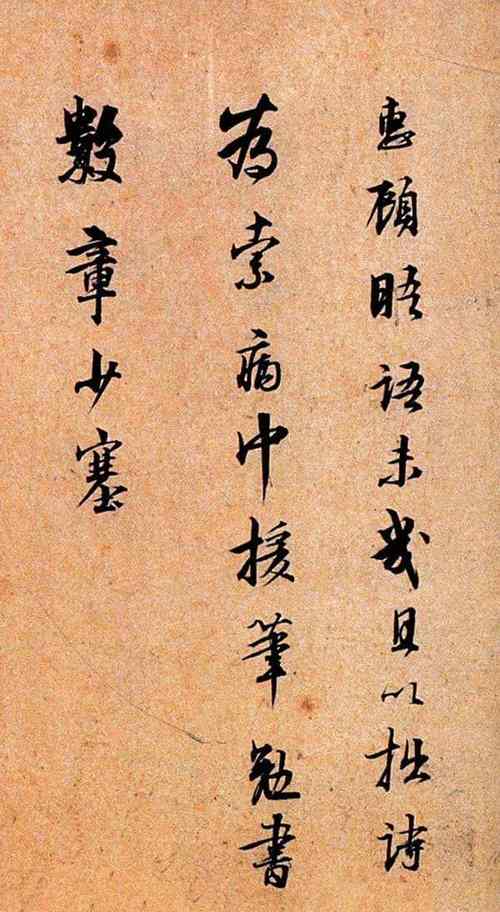 惠顧晤語未幾且以拙詩
為索病中援筆勉書
數章少塞